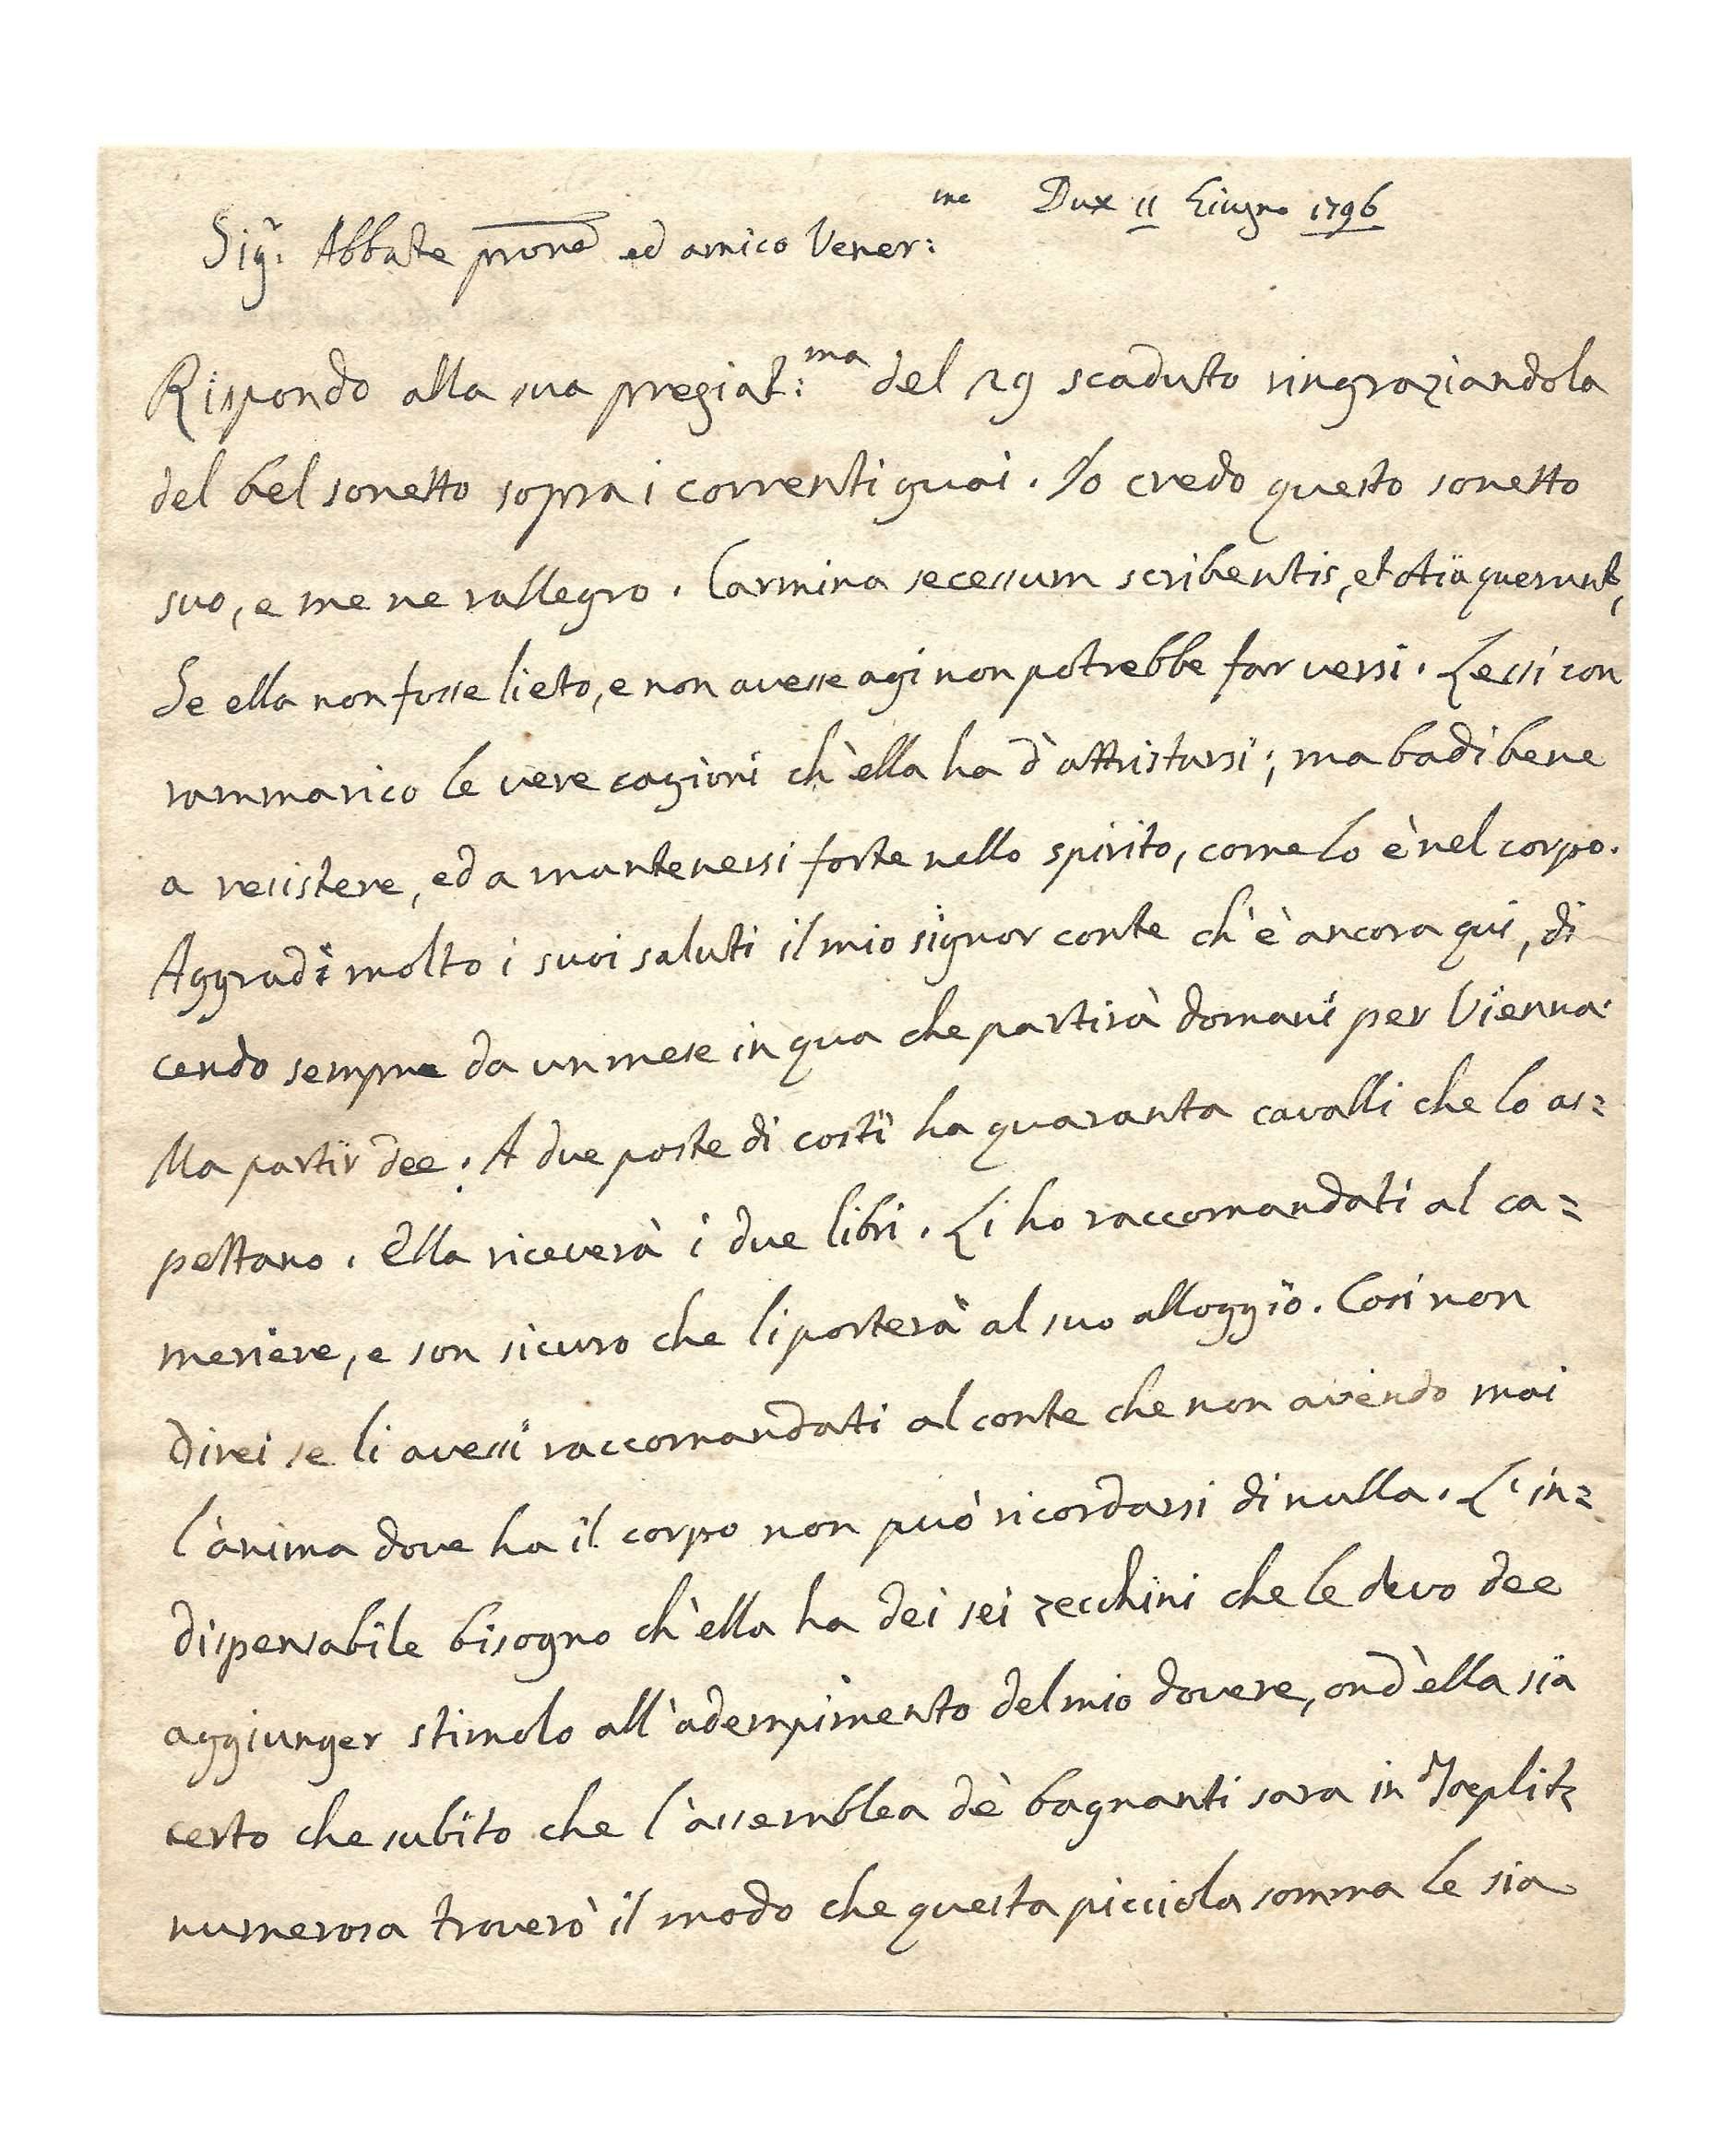 Dux 11 Giugno 1796
Sig.r Abbate prone ed amico Vener:mo
Rispondo alla sua pregiat:ma del 29 scaduto ringraziandola
del bel sonetto sopra i correnti guai. Io credo questo sonetto
suo, e me ne rallegro. Carmina secessum scribentis, et otia querunt,
Se ella non fosse lieto, e non avesse agi non potrebbe far versi. Lessi con
rammarico le vere cagioni ch'ella ha d'attristarsi; ma badi bene
a resistere, ed a mantenersi forte nello spirito, come lo è nel corpo.
Aggradì molto i suoi saluti il mio signor conte ch'è ancora qui, di
cendo sempre da un mese in qua che partirà domani per Vienna.
Ma partir dee. A due poste di costì ha quaranta cavalli che lo as=
pettano. Ella riceverà i due libri. Li ho raccomandati al ca=
meriere, e son sicuro che li porterà al suo alloggio. Così non
direi se li avessi raccomandati al conte che non avendo mai
l'anima dove ha il corpo non può ricordarsi di nulla. L'in=
dispensabile bisogno ch'ella ha dei sei zecchini che le devo dee
aggiunger stimolo all'adempimento del mio dovere, ond'ella sia
certo che subito che l'assemblea de' bagnanti sara in Toeplitz
numerosa troverò il modo che questa picciola somma le sia